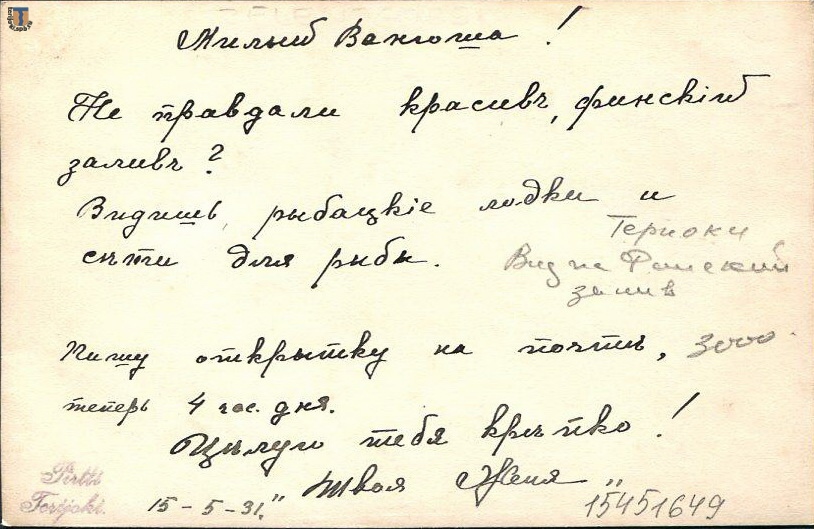 Милый Ванюша!
Не правдали красивъ, финскій
заливъ?
Видишь, рыбацкіе лодки и
сѣти для рыбы.
Териоки
Вид на Финский
залив
Пишу открытку на почтѣ,
3000
теперь 4 час. дня.
Цѣлую тебя крѣпко!
Твоя Женя"
15-5-31."
Pirtti
Terijoki.
15451649